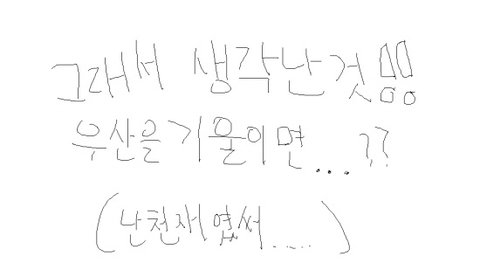 그래서 생각난것!!
우산을 기울이면...??
(난천재였써.....)